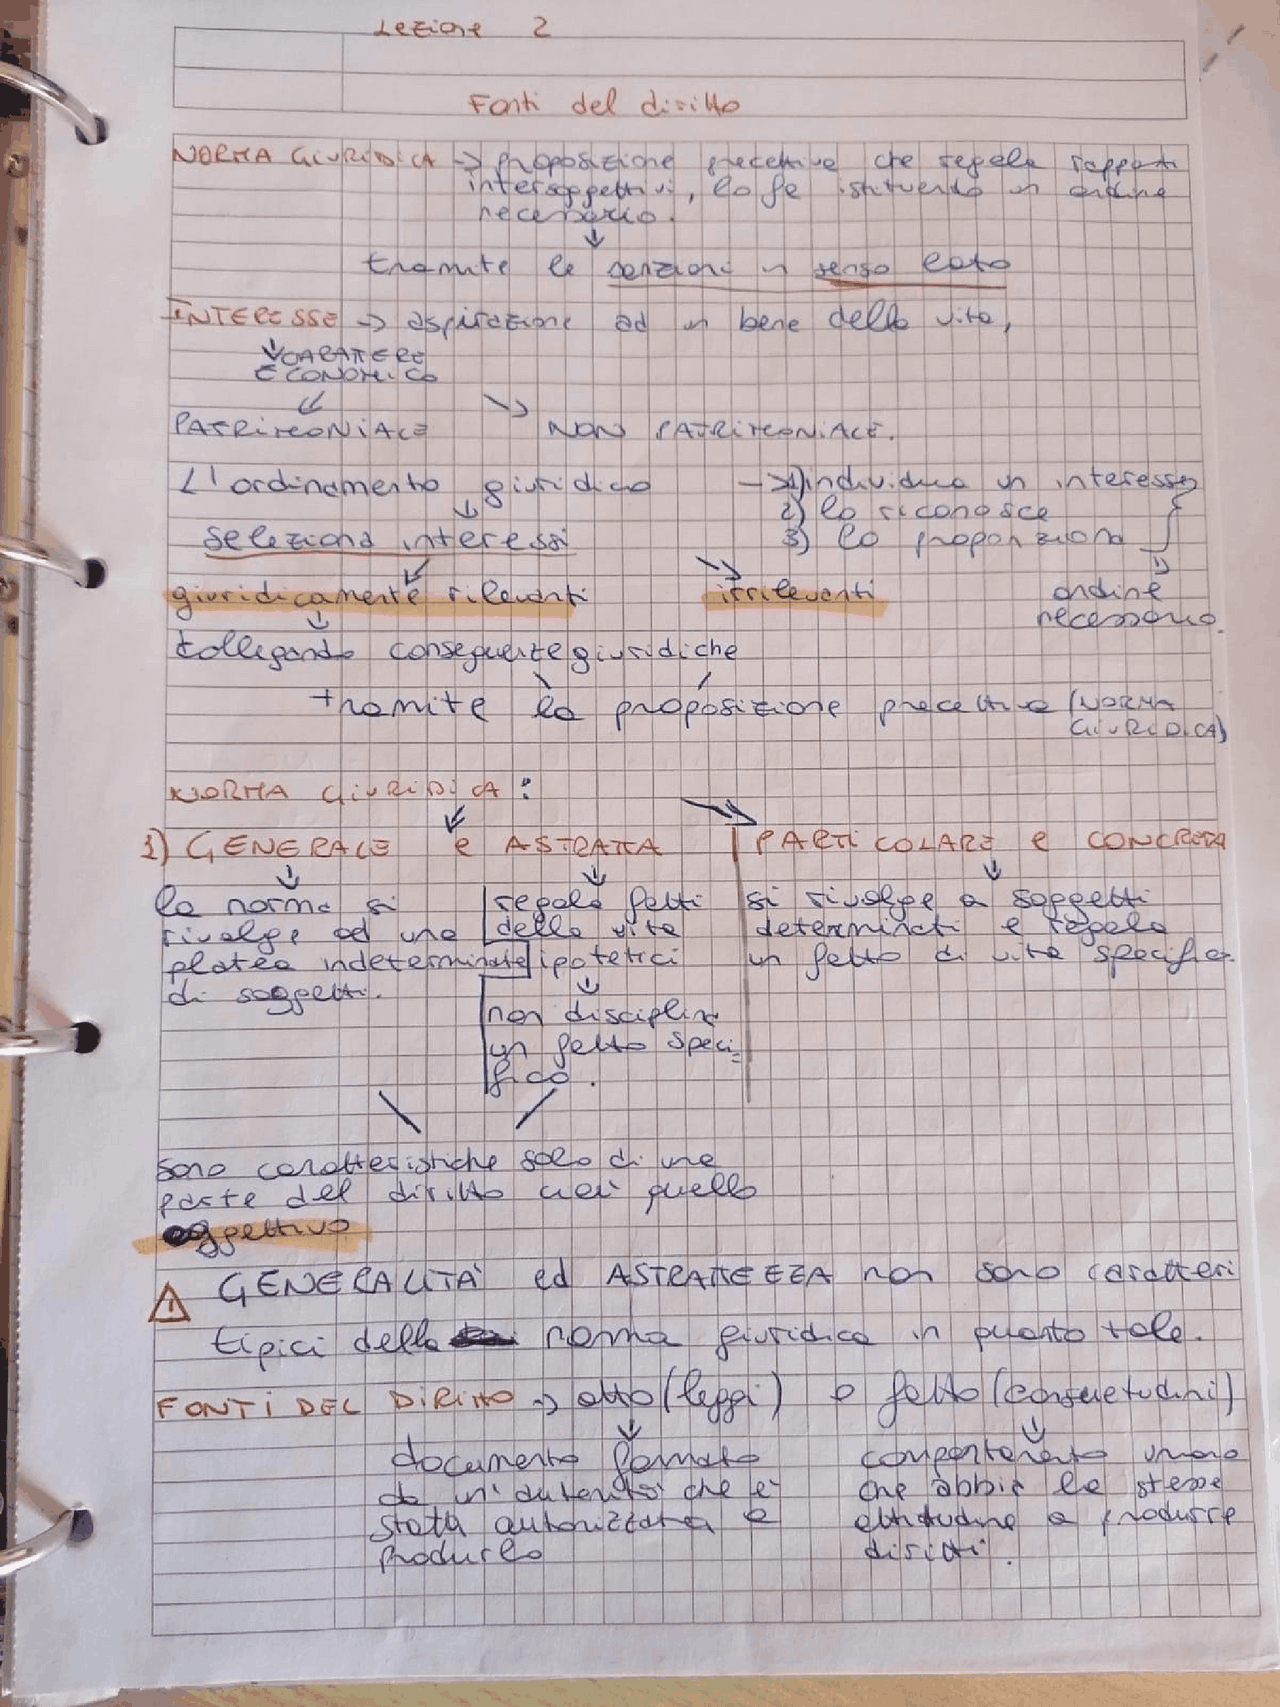 Lezione 2
Fonti del diritto
NORMA GIURIDICA -> proposizione precettiva che regola rapporti
intersoggettivi, lo fa istituendo un ordine
necessario.
tramite le sanzioni in senso lato
INTERESSE -> aspirazione ad un bene della vita,
CARATTERE
ECONOMICO
PATRIMONIALE NON PATRIMONIALE.
L'ordinamento giuridico -> 1) individua un interesse
2) lo riconosce
seleziona interessi 3) lo proporziona
giuridicamente rilevanti irrilevanti ordine
necessario.
collegando conseguenze giuridiche
tramite la proposizione precettiva (NORMA
GIURIDICA)
NORMA GIURIDICA:
1) GENERALE e ASTRATTA PARTICOLARE e CONCRETA
la norma si regola fatti si rivolge a soggetti
rivolge ad una della vita determinati e regola
platea indeterminata ipotetici un fatto di vita specifico.
di soggetti.
non disciplina
un fatto speci=
fico.
sono caratteristiche solo di una
parte del diritto cioè quello
oggettivo
GENERALITÀ ed ASTRATTEZZA non sono caratteri
tipici della norma giuridica in quanto tale.
FONTI DEL DIRITTO -> atto (leggi) o fatto (consuetudini)
documento formato comportamento umano
da un'autorità che è che abbia la stessa
stata autorizzata a attitudine a produrre
produrlo diritti.